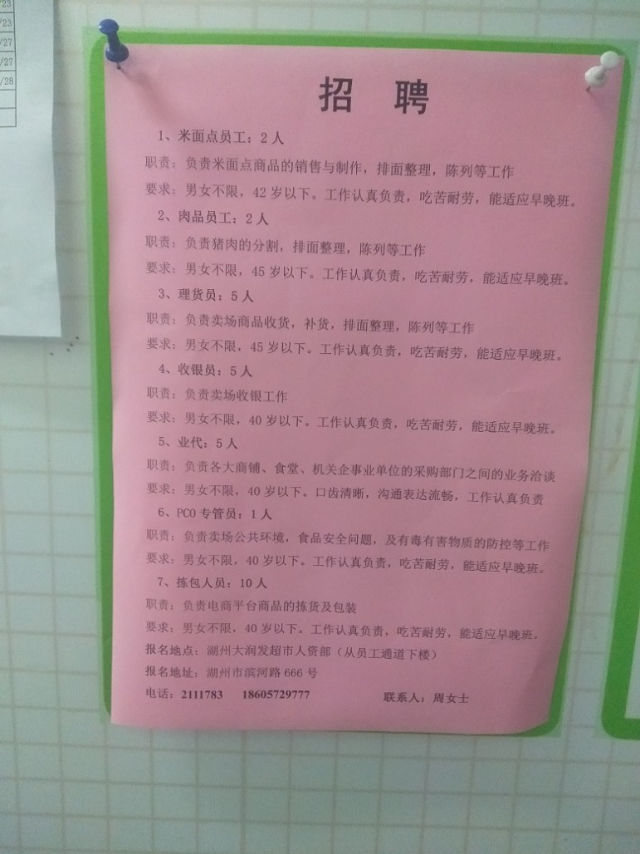 /23
/23
/27
/27
/28
招 聘
1、米面点员工：2人
职责：负责米面点商品的销售与制作，排面整理，陈列等工作
要求：男女不限，42岁以下。工作认真负责，吃苦耐劳，能适应早晚班。
2、肉品员工：2人
职责：负责猪肉的分割，排面整理，陈列等工作
要求：男女不限，45岁以下。工作认真负责，吃苦耐劳，能适应早晚班。
3、理货员：5人
职责：负责卖场商品收货，补货，排面整理，陈列等工作
要求：男女不限，45岁以下。工作认真负责，吃苦耐劳，能适应早晚班。
4、收银员：5人
职责：负责卖场收银工作
要求：男女不限，40岁以下。工作认真负责，吃苦耐劳，能适应早晚班。
5、业代：5人
职责：负责各大商铺、食堂、机关企事业单位的采购部门之间的业务洽谈
要求：男女不限，40岁以下。口齿清晰，沟通表达流畅，工作认真负责
6、PCO专管员：1人
职责：负责卖场公共环境，食品安全问题，及有毒有害物质的防控等工作
要求：男女不限，40岁以下。工作认真负责，吃苦耐劳，能适应早晚班。
7、拣包人员：10人
职责：负责电商平台商品的拣货及包装
要求：男女不限，40岁以下。工作认真负责，吃苦耐劳，能适应早晚班。
报名地点：湖州大润发超市人资部（从员工通道下楼）
报名地址：湖州市滨河路666号
电话：2111783 18605729777 联系人：周女士